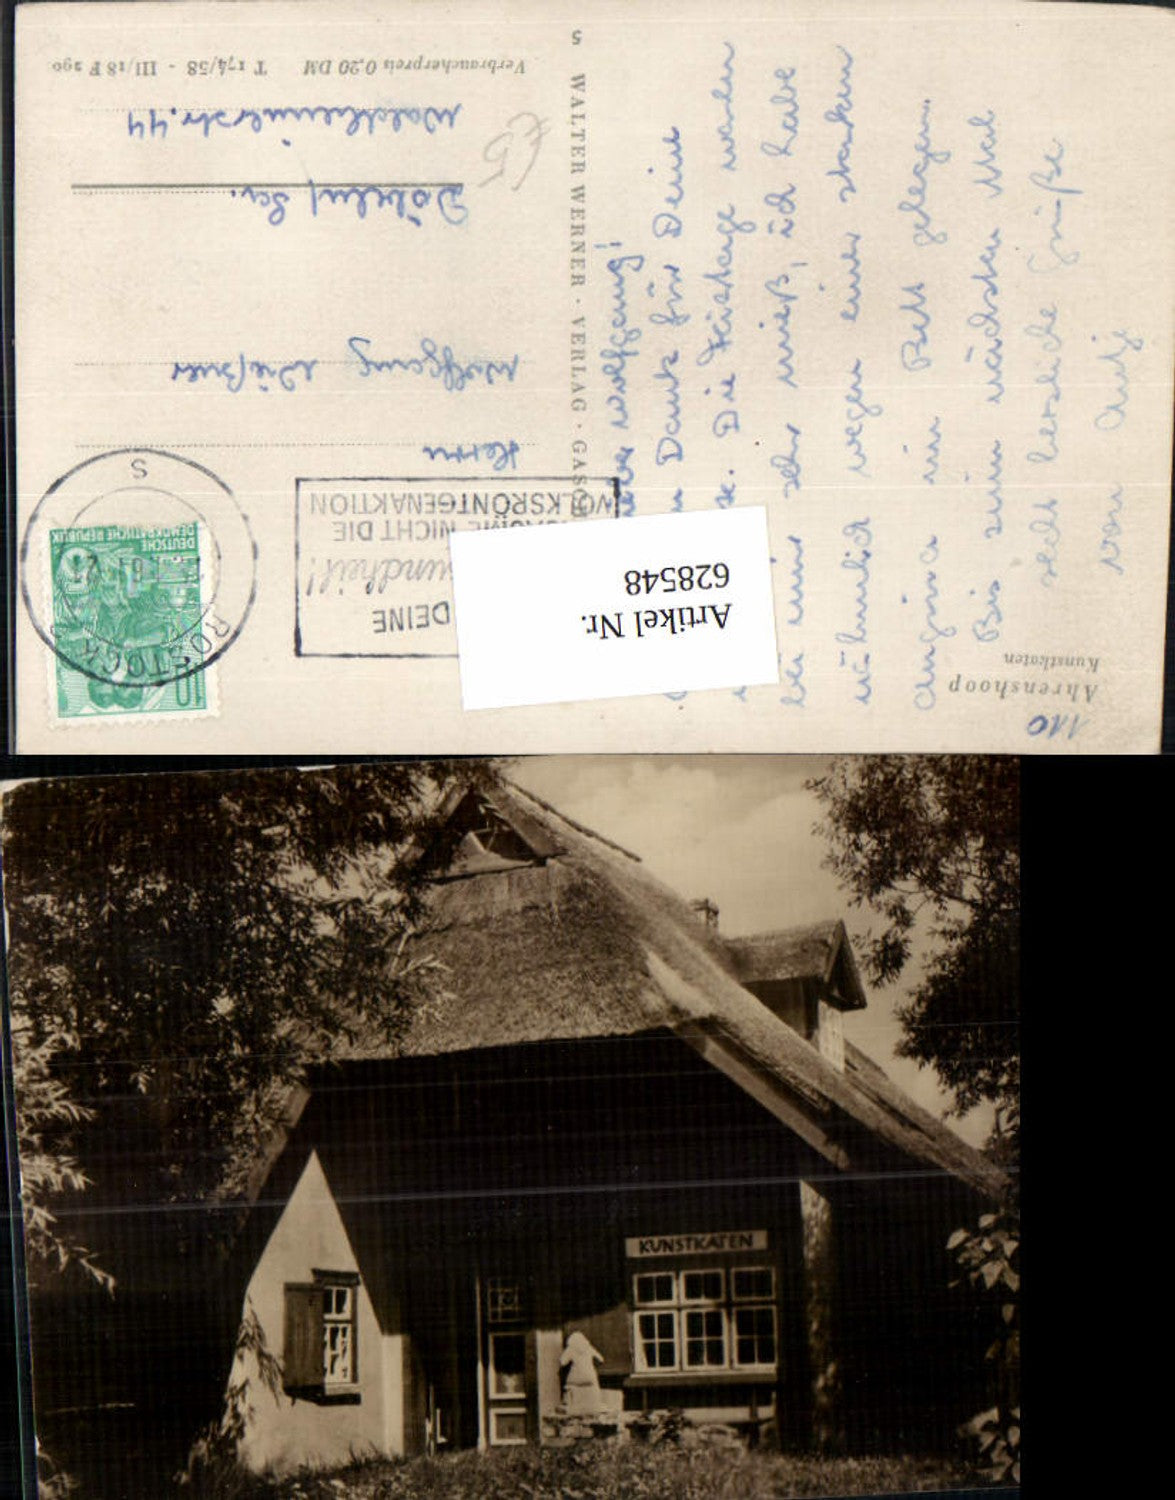 Ahrenshoop
Kunstkaten
110
Wolfgang!
Dank für Deine
Die Feiertage waren
bei mir sehr mieß, ich habe
nähmlich wegen einer starken
Angina im Bett gelegen.
Bis zum nächsten Mal
recht herzliche Grüße
von
WALTER WERNER · VERLAG · GASC
5
DEINE
NICHT DIE
VOLKSRÖNTGENAKTION
ROSTOCK
S
10
DEUTSCHE
DEMOKRATISCHE REPUBLIK
Herrn
Wolfgang
Döbeln/Sa.
Waldheimerstr. 44
Verbraucherpreis 0,20 DM T 174/58 - III/18 F 290
€5
Artikel Nr.
628548
KUNSTKATEN